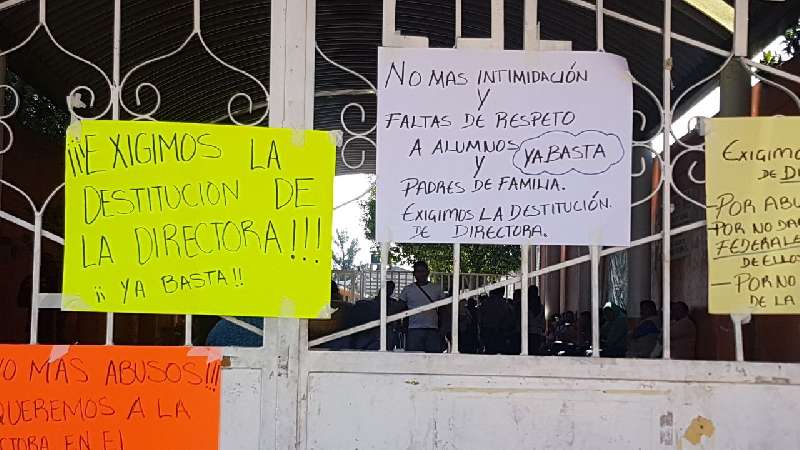 ¡¡¡EXIGIMOS LA
DESTITUCION DE
LA DIRECTORA!!!
¡¡ YA BASTA!!
NO MAS INTIMIDACIÓN
Y
FALTAS DE RESPETO
A ALUMNOS YA BASTA
Y
PADRES DE FAMILIA.
EXIGIMOS LA DESTITUCIÓN.
DE DIRECTORA.
EXIGIMO
DE DI
-POR ABU
-POR NO DA
FEDERALE
DE ELLO
-POR NO
DE LA
NO MAS ABUSOS!!!
QUEREMOS A LA
CTORA EN EL